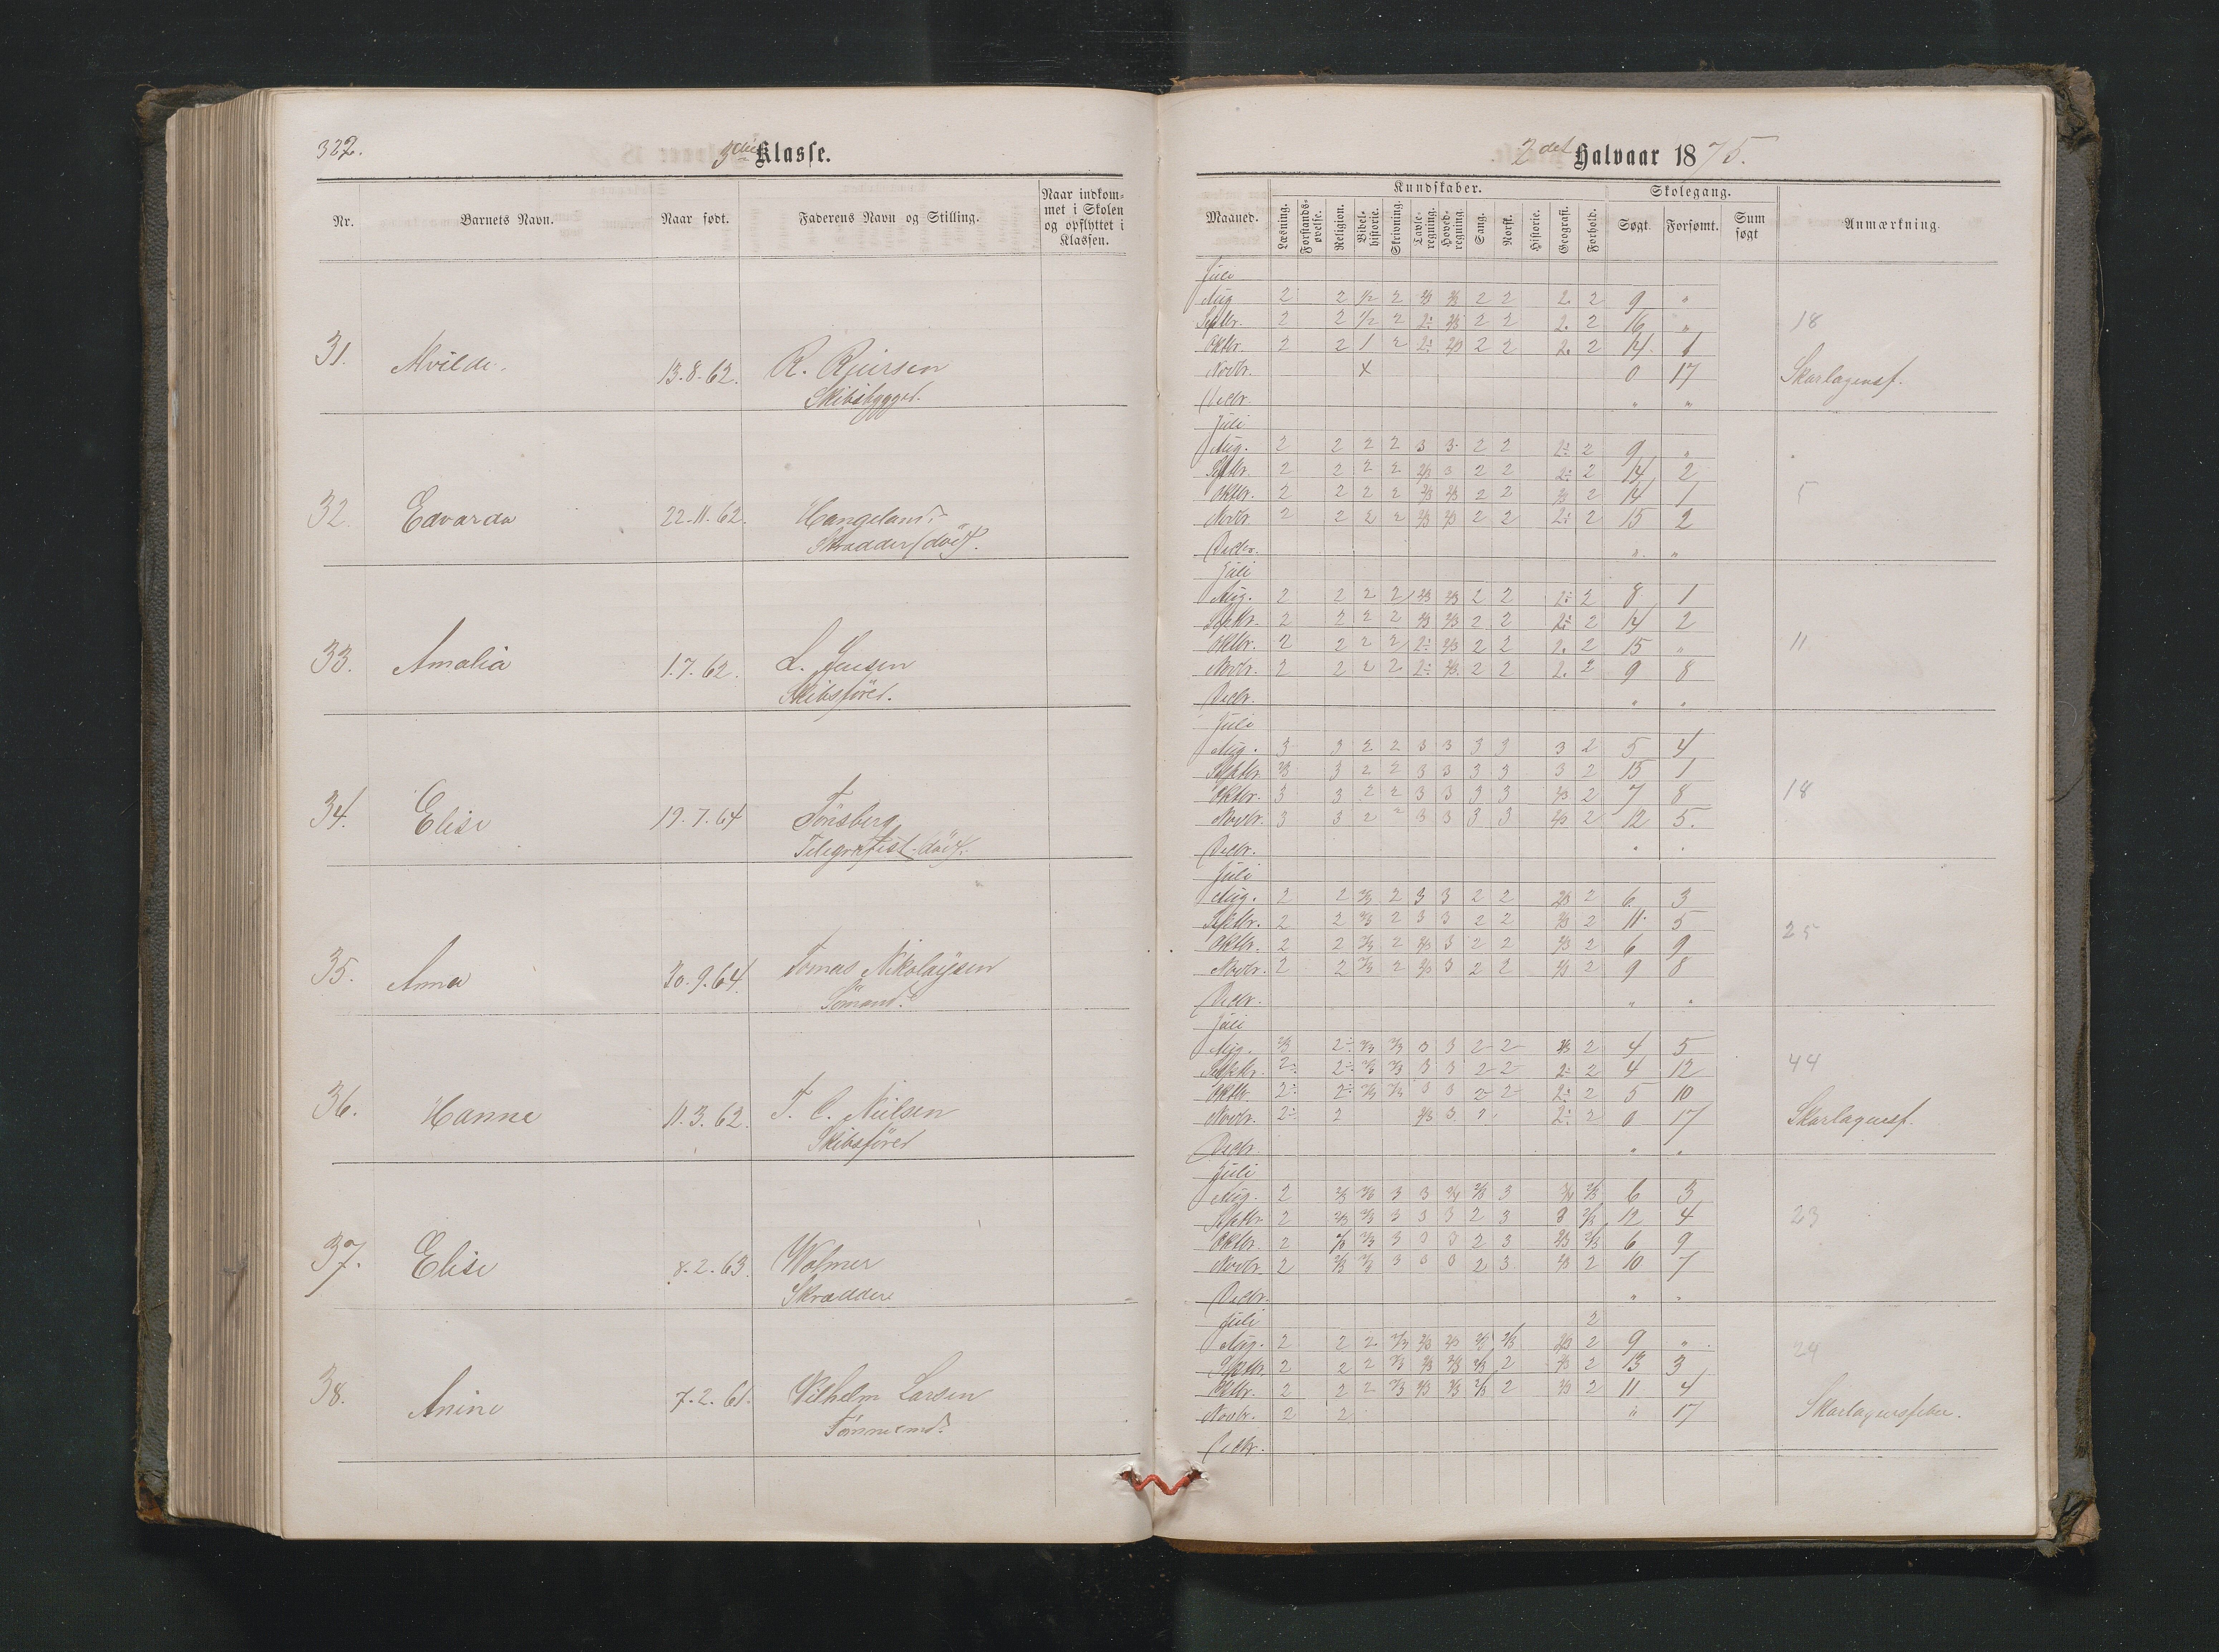 322.
3die Klasse.
Nr. Barnets Navn. Naar født. Faderens Navn og Stilling. Naar indkom-
met i Skolen
og opflyttet i
Klassen.
31. Alvilde. 13.8.62. R. Reiersen
Skibsbygger.
32. Edvarda 22.11.62. Hangeland.
Skrædder (död).
33. Amalia 1.7.62. L. Jensen
Skibsförer.
34. Elise 19.7.64 Tönsberg
Telegrafist död.
35. Anna 30.9.64. Tomas Nikolaysen
Sömand.
36. Hanne 11.3.62. T. C. Nielsen
Skibsförer
37. Elise 8.2.63. Wolmer
Skrædder
38. Anine 7.2.61. Vilhelm Larsen
Tömmermd.
2det Halvaar 1875.
Kundskaber. Skolegang.
Maaned. Læsning. Forstands-
øvelse. Religion. Bibel-
historie. Skrivning. Tavle-
regning. Hoved-
regning. Sang. Norsk. Historie. Geografi. Forhold. Søgt. Forsømt. Sum
søgt Anmærkning.
Juli
Aug 2 2 1/2 2 2/3 2/3 2 2 2. 2 9 "
Septbr. 2 2 1/2 2 2÷ 2/3 2 2 2. 2 16 " 18
Oktbr. 2 2 1 2 2÷ 2/3 2 2 2. 2 14. 1
Novbr. x 0 17 Skarlagensf.
Decbr. " "
Juli
Aug. 2 2 2 2 3 3 2 2 2÷ 2 9 "
Septbr. 2 2 2 2 2/3 3 2 2 2÷ 2 14 2
Oktbr. 2 2 2 2 2/3 2/3 2 2 2/3 2 14 1 5
Novbr. 2 2 2 2 2/3 2/3 2 2 2÷ 2 15 2
Decbr. " "
Juli
Aug. 2 2 2 2 2/3 2/3 2 2 2÷ 2 8 1
Septbr. 2 2 2 2 2/3 2/3 2 2 2÷ 2 14 2
Oktbr. 2 2 2 2 2÷ 2/3 2 2 2. 2 15 " 11
Novbr. 2 2 2 2 2÷ 2/3 2 2 2. 2 9 8
Decbr. " "
Juli
Aug. 3 3 2 2 3 3 3 3 3 2 5 4
Septbr. 2/3 3 2 2 3 3 3 3 3 2 15 1
Oktbr. 3 3 2 2 3 3 3 3 2/3 2 7 8 18
Novbr. 3 3 2 2 3 3 3 3 2/3 2 12 5.
Decbr. " "
Juli
Aug. 2 2 2/3 2 3 3 2 2 2/3 2 6. 3
Septbr. 2 2 2/3 2 3 3 2 2 2/3 2 11. 5 25
Oktbr. 2 2 2/3 2 2/3 3 2 2 2/3 2 6 9
Novbr. 2 2 2/3 2 2/3 3 2 2 2/3 2 9 8
Decbr. " "
Juli
Aug. 2/3 2÷ 2/3 2/3 3 3 2 2 2/3 2 4 5 44
Septbr. 2÷ 2÷ 2/3 2/3 3 3 2 2 2÷ 2 4 12
Oktbr. 2÷ 2÷ 2/3 2/3 3 3 2 2 2÷ 2 5 10
Novbr. 2÷ 2 2/3 3 2 2÷ 2 0 17 Skarlagensf.
Decbr. " "
Juli
Aug. 2 2/3 2/3 3 3 3/4 2/3 3 3/4 2/3 6 3
Septbr. 2 2/3 2/3 3 3 3 2 3 3 2/3 12 4 23
Oktbr. 2 2/3 2/3 3 3 3 2 3 2/3 2/3 6 9
Novbr. 2 2/3 2/3 3 3 3 2 3 2/3 2 10 7
Decbr. " "
Juli 2
Aug. 2 2 2 2/3 2/3 2/3 2/3 2/3 2/3 2 9 " 24
Septbr. 2 2 2 2/3 2/3 2/3 2/3 2 2/3 2 13 3
Oktbr. 2 2 2 2/3 2/3 2/3 2/3 2 2/3 2 11 4
Novbr. 2 2 " 17 Skarlagensfeber.
Decbr.